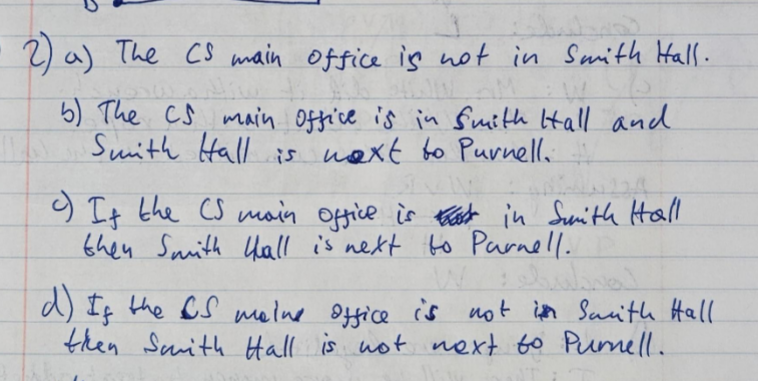 2) a) The CS main office is not in Smith Hall.
b) The CS main office is in Smith Hall and
Smith Hall is next to Purnell.
c) If the CS main office is in Smith Hall
then Smith Hall is next to Purnell.
d) If the CS maine office is not in Smith Hall
then Smith Hall is not next to Purnell.